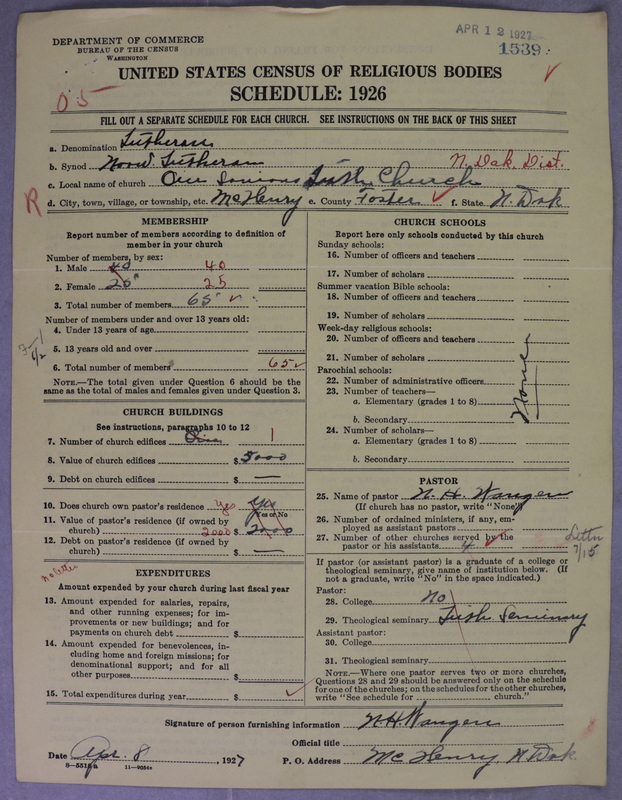 APR 12 1927
1539
DEPARTMENT OF COMMERCE
BUREAU OF THE CENSUS
WASHINGTON
UNITED STATES CENSUS OF RELIGIOUS BODIES
SCHEDULE: 1926
05
FILL OUT A SEPARATE SCHEDULE FOR EACH CHURCH. SEE INSTRUCTIONS ON THE BACK OF THIS SHEET
a. Denomination Lutheran
b. Synod Norw. Lutheran N. Dak. Dist.
c. Local name of church Our Saviours Luth Church
R
d. City, town, village, or township, etc. McHenry e. County Foster f. State N. Dak
MEMBERSHIP
Report number of members according to definition of
member in your church
Number of members, by sex:
1. Male 40 40
2. Female 25 25
3. Total number of members 65
Number of members under and over 13 years old:
4. Under 13 years of age
5. 13 years old and over
6. Total number of members 65
NOTE.—The total given under Question 6 should be the
same as the total of males and females given under Question 3.
CHURCH BUILDINGS
See instructions, paragraphs 10 to 12
7. Number of church edifices One 1
8. Value of church edifices $ 5000
9. Debt on church edifices $ —
10. Does church own pastor's residence Yes Yes
Yes or No
11. Value of pastor's residence (if owned by
church) 2000 $ 2000
12. Debt on pastor's residence (if owned by
church) $ —
No letter
EXPENDITURES
Amount expended by your church during last fiscal year
13. Amount expended for salaries, repairs,
and other running expenses; for im-
provements or new buildings; and for
payments on church debt $
14. Amount expended for benevolences, in-
cluding home and foreign missions; for
denominational support; and for all
other purposes $
15. Total expenditures during year $
CHURCH SCHOOLS
Report here only schools conducted by this church
Sunday schools:
16. Number of officers and teachers
17. Number of scholars
Summer vacation Bible schools:
18. Number of officers and teachers
19. Number of scholars
Week-day religious schools:
20. Number of officers and teachers
21. Number of scholars
Parochial schools:
22. Number of administrative officers
23. Number of teachers—
a. Elementary (grades 1 to 8)
b. Secondary
24. Number of scholars—
a. Elementary (grades 1 to 8)
b. Secondary
None
PASTOR
25. Name of pastor N. H. Wangen
(If church has no pastor, write "None")
26. Number of ordained ministers, if any, em-
ployed as assistant pastors
27. Number of other churches served by the
pastor or his assistants 4
Letter
7/15
If pastor (or assistant pastor) is a graduate of a college or
theological seminary, give name of institution below. (If
not a graduate, write "No" in the space indicated.)
Pastor:
28. College No
29. Theological seminary Luth. Seminary
Assistant pastor:
30. College
31. Theological seminary
NOTE.—Where one pastor serves two or more churches,
Questions 28 and 29 should be answered only on the schedule
for one of the churches; on the schedules for the other churches,
write "See schedule for church."
Signature of person furnishing information N.H. Wangen
Official title
Date Apr. 8, 1927 P. O. Address McHenry N. Dak.
11—9564a